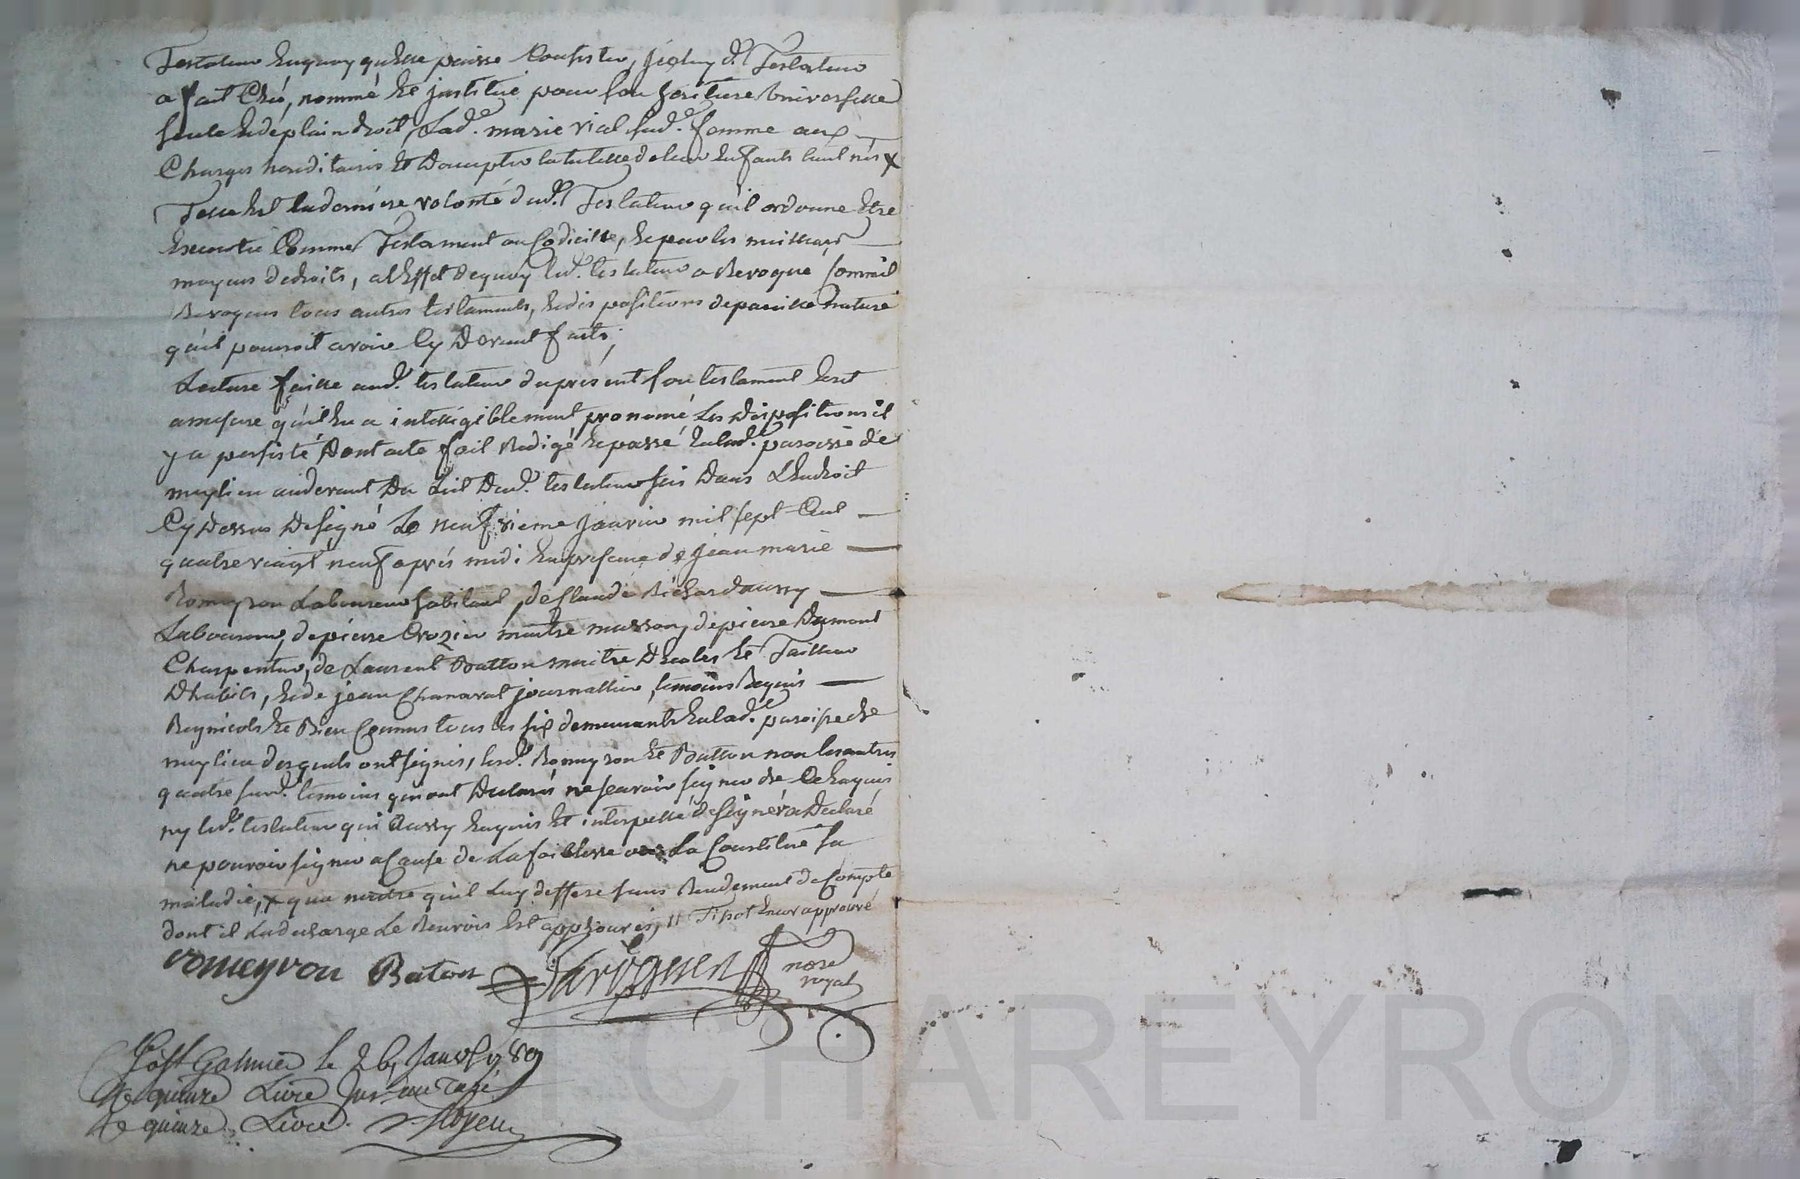 Testateur enquoy quelle puisse Consister, jceluy d.t Testateur
a fait Créé, nommé Et justitué pour son héritiere Universelle
seule Et de plain droit, Lad.e marie vial sud.e femme aux
Charges hereditaires Et Daccepter la tutelle de leur Enfants tant nés x
Telle Est la derniére volonté dud.t Testateur quil ordonne Etre
Executée Comme Testament ou Codicille, Et par les meilleurs
moyens de droits, a L'Effet de quoy led.t testateur a Revoqué Comm'il
Revoque tous autres testaments, Et dispositions de pareille nature
qu'il pourroit avoir Cy Devant faits;
Lecture faitte aud.t testateur du présent son testament Ecrit
amesure qu'il En a intelligiblement prononcé Les Dispositions il
y a persisté Dont acte fait Redigé Et passé En lad.e paroisse de
meylieu audevant Du Lit Dud.t testateur sis Dans L'Endroit
Cy dessus Designé Le neufvieme janvier mil sept Cent
quatre vingt neuf aprés midi En presence de jean marie
Romeyron Laboureur habitant, de Claude Richard aussy
Laboureur, de pierre Crozier maitre masson, de pierre Dumont
Charpentier, de Laurent Batton maitre D'Ecoles Et Tailleur
D'habits, Et de jean Chanavat journallier, temoins Requis
Regnicoles Et Bien Connus tous les six demeurants En lad.e paroisse de
meylieu desquels ont signés, lesd.ts Romeyron Et Batton non les autres
quatre susd.ts temoins qui ont Declarés ne scavoir signer de Ce Enquis
ny led.t testateur qui aussy Enquis Et interpellé de signer a Declaré
ne pouvoir signer a Cause de La faiblesse ou La Constitue sa
maladie, x qua naitre quil Luy deffere sans Rendement de Compte
dont il La decharge Le Renvois Est approuvés, approuvé
romeyron Baton no.re
royal
à St Galmier le 26 Janv. 1789
Re quinze Livre
Re quinze Livre.